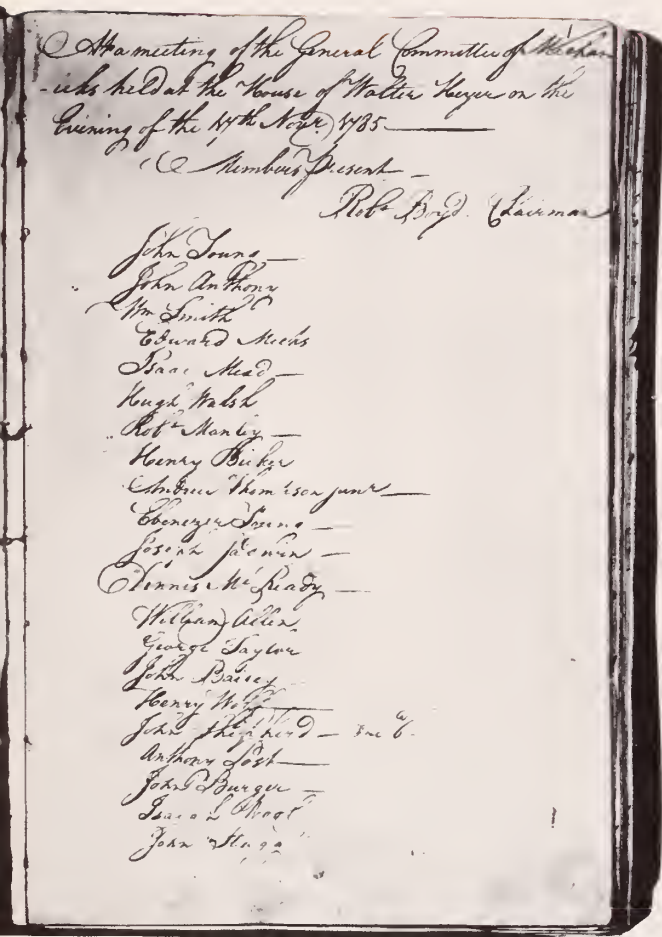 At a meeting of the General Committee of Mechan
-icks held at the House of Walter Heyer on the
Evening of the 17th Novr. 1785
Members Present
Robt Boyd. Chairman
John Young
John Anthony
Wm Smith
Edward Meeks
Isaac Mead
Hugh Walsh
Robt Manley
Henry Bicker
Andrew Thomson junr
Ebenezer Young
Joseph
Dennis McReady
William Allen
George Taylor
John Bailey
Henry
John Shepherd
Anthony Post
John Burger
John